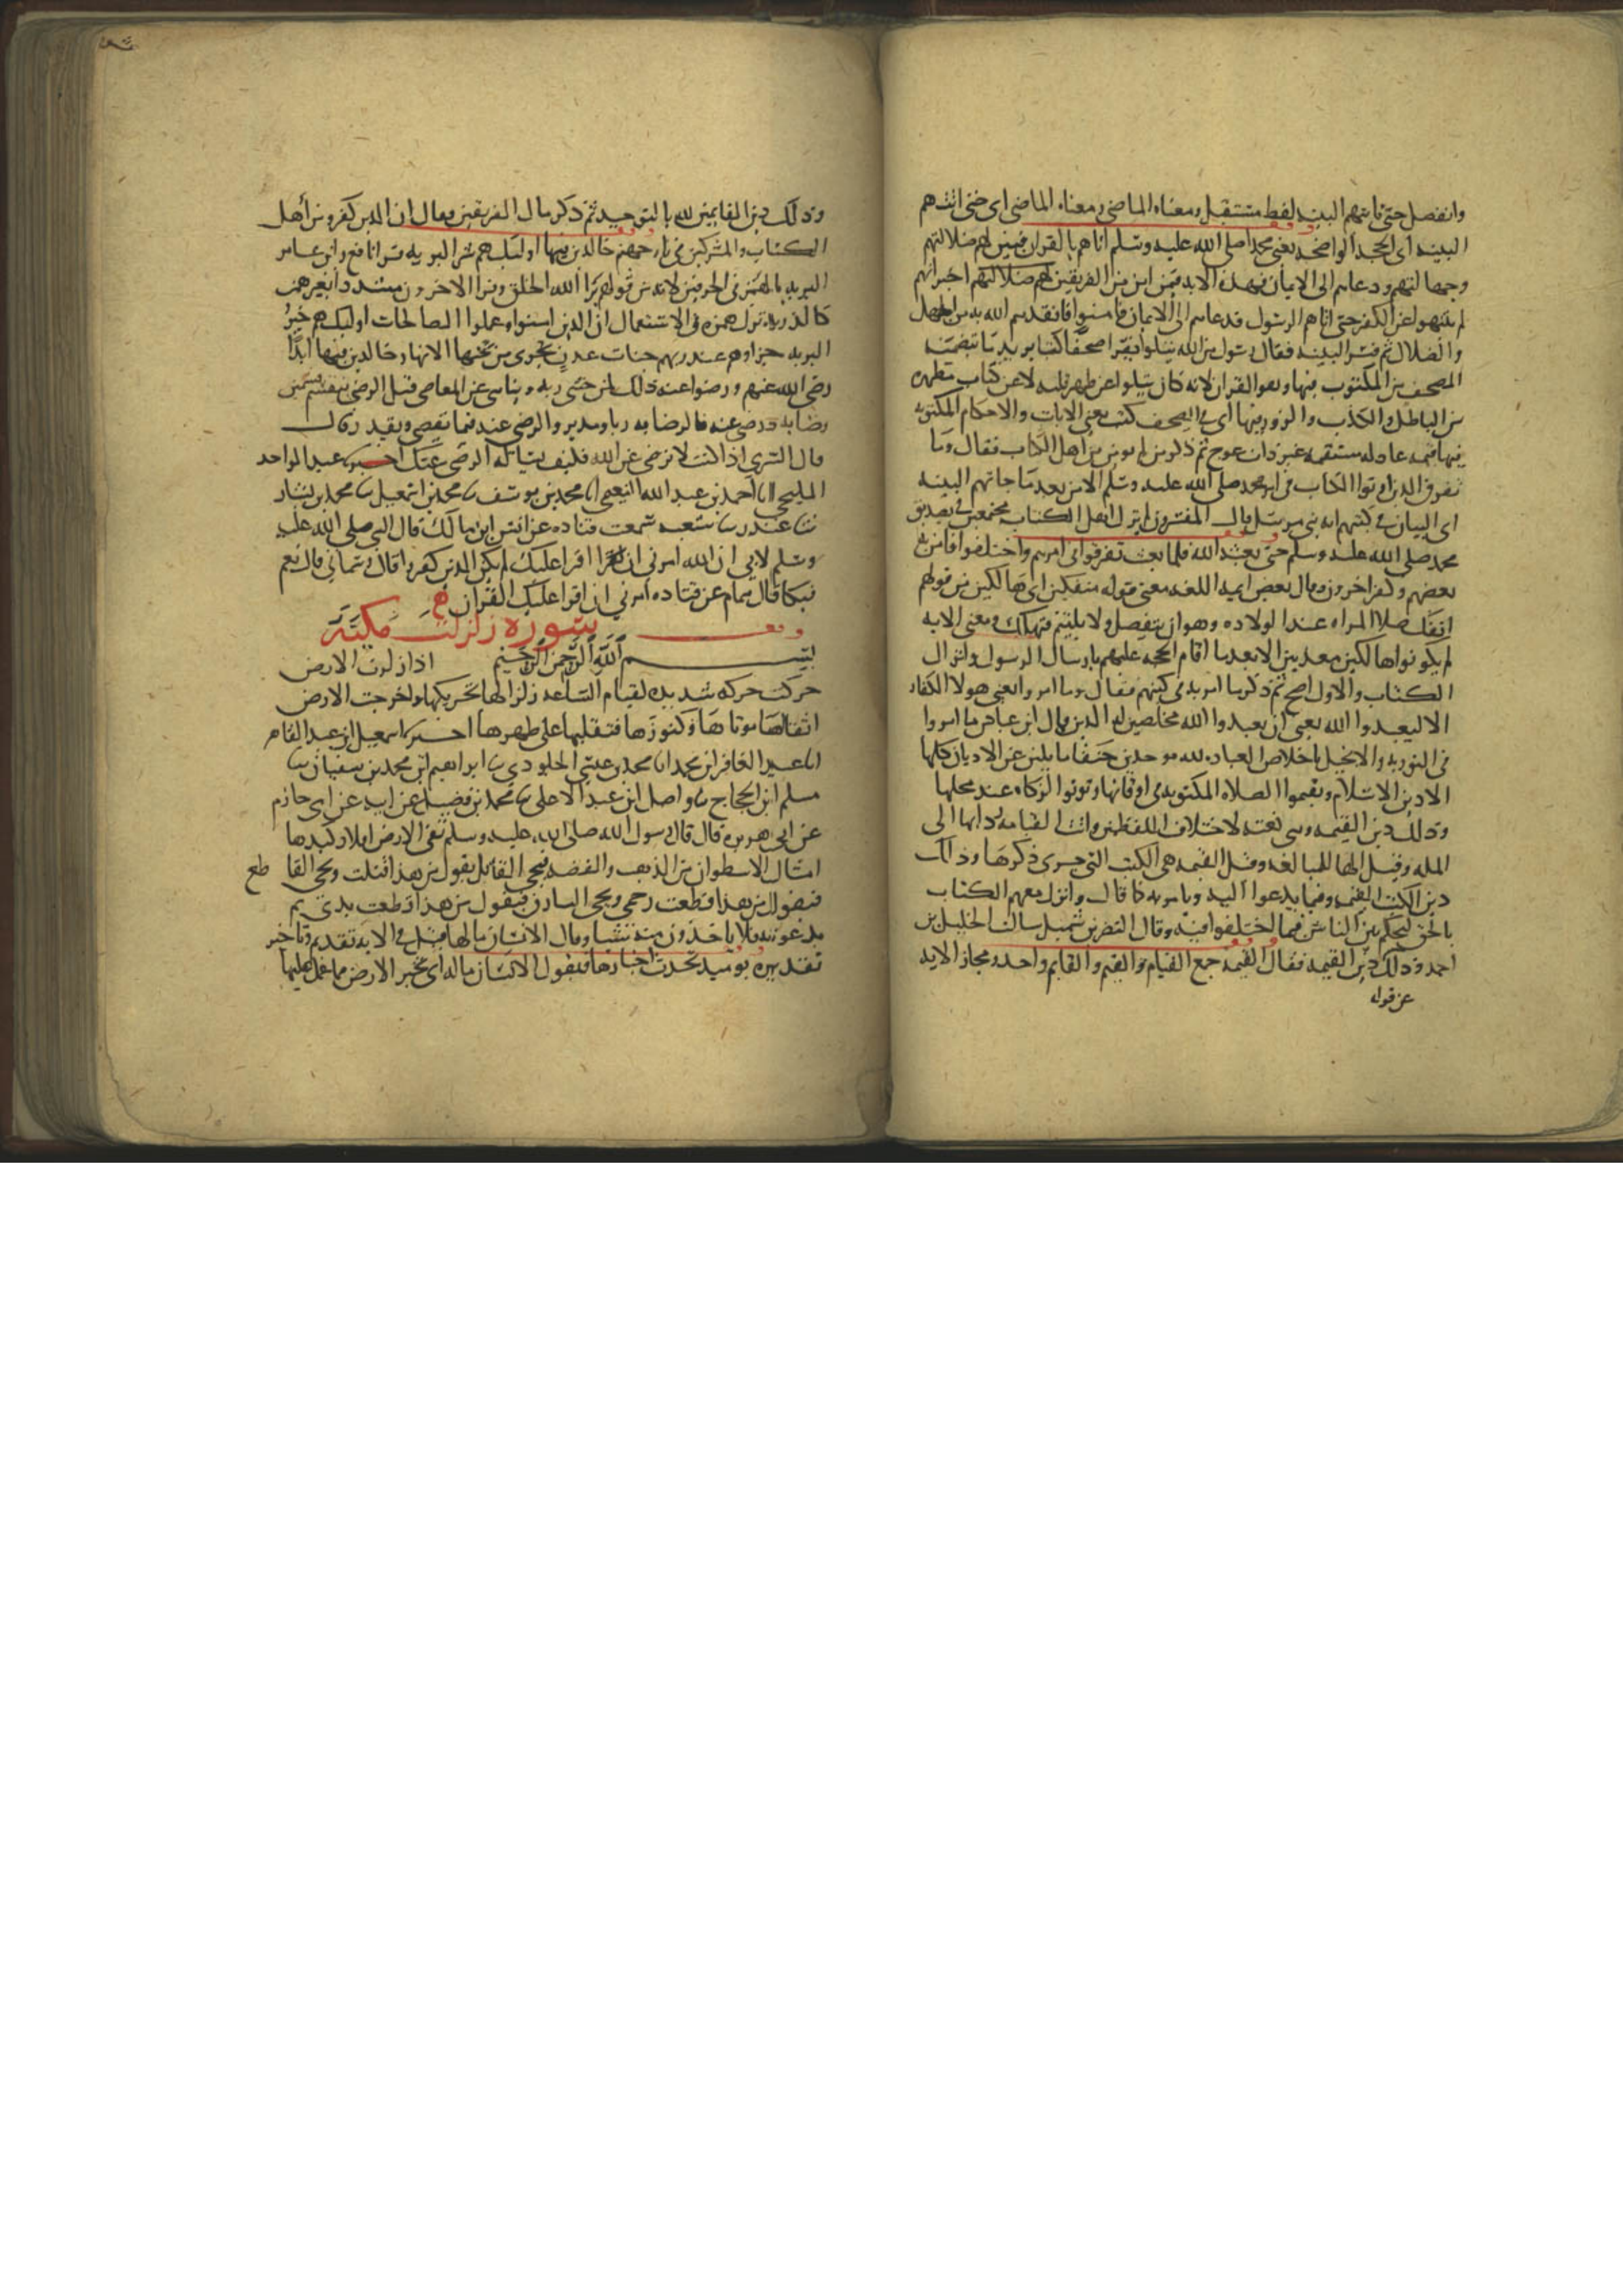 وانفصل حتى تاتيهم البينه لفظه مستقبل ومعناه الماضى اى حتى اتتهم
البينه اى الحجه الواضحه يعنى محمدا صلى الله عليه وسلم اتاهم بالقران فبين لهم ضلالتهم
وجهالتهم ودعاهم الى الايمان فهذه الايه فيمن امن من الفريقين اخبر انهم
لم ينتهوا عن الكفر حتى اتاهم الرسول فدعاهم الى الايمان فامنوا فانقذهم الله به من الجهل
والضلال ثم فسر البينه فقال رسول من الله يتلوا يقرا صحفا كتبا يريد ما تتضمنه
الصحف من المكتوب فيها وهو القران لانه كان يتلوا عن ظهر قلبه لا عن كتاب مطهره
من الباطل والكذب والزور فيها اى فى الصحف كتب يعنى الايات والاحكام المكتوبه
فيها قيمه عادله مستقيمه غير ذات عوج ثم ذكر من لم يومن من اهل الكتاب فقال وما
تفرق الذين اوتوا الكتاب فى امر محمد صلى الله عليه وسلم الا من بعد ما جاتهم البينه
اى البيان فى كتبهم انه نبى مرسل قال المفسرون لم يزل اهل الكتاب مجتمعين فى تصديق
محمد صلى الله عليه وسلم حتى بعثه الله فلما بعث تفرقوا فى امرهم واختلفوا فامن به
بعضهم وكفر اخرون وقال بعض ايمه اللغه معنى قوله منفكين اى هالكين من قولهم
انفك صلا المراه عند الولاده وهو ان ينفصل ولا يلتيم فتهلك ومعنى الايه
لم يكونوا هالكين معذبين الا بعد ما اقام الحجه عليهم بارسال الرسول وانزال
الكتاب والاول اصح ثم ذكر ما امر به فى كتبهم فقال وما امروا يعنى هولا الكفار
الا ليعبدوا الله يعنى ان يعبدوا الله مخلصين له الدين قال ابن عباس ما امروا
فى التوريه والانجيل الا باخلاص العباده لله موحدين حنفا مايلين عن الاديان كلها
الا دين الاسلام ويقيموا الصلاه المكتوبه فى اوقاتها ويوتوا الزكاه عند محلها
وذلك دين القيمه وهى نعته لاختلاف اللفظين وانث القيمه ردا بها الى
المله وقيل الها للمبالغه وقيل القيمه هى الكتب التى جرى ذكرها وذلك
دين الكتب القيمه فيما يدعوا اليه ويامر به كما قال وانزل معهم الكتاب
بالحق ليحكم بين الناس فيما اختلفوا فيه وقال النضر بن شميل سالت الخليل بن
احمد وذلك دين القيمه فقال القيمه جمع القيام والقيم والقايم واحد ومجاز الايه
عن قوله
وذلك دين القايمين لله بالتوحيد ثم ذكر مال الفريقين وقال ان الذين كفروا من اهل
الكتاب والمشركين فى نار جهنم خالدين فيها اوليك هم شر البريه قرا نافع وابن عامر
البريه بالهمز فى الحرفين لانه من قولهم برا الله الخلق وقرا الاخرون مشددا بغير همز
كالذريه ترك همزه فى الاستعمال ان الذين امنوا وعملوا الصالحات اوليك هم خير
البريه جزاوهم عند ربهم جنات عدن تجرى من تحتها الانهار خالدين فيها ابدا
رضى الله عنهم ورضوا عنه ذلك لمن خشى ربه وتناهى عن المعاصى وقيل الرضى ينقسم قسمين
رضا به ورضى عنه فالرضا به ربا ومدبرا والرضى عنه فيما يقضى ويقدر
قال السدى اذا كنت لا ترضى عن الله فكيف تساله الرضى عنك اخبرنا عبد الواحد
المليحى انا احمد بن عبد الله النعيمى انا محمد بن يوسف ثنا محمد بن اسمعيل ثنا محمد بن بشار
ثنا غندر ثنا شعبه سمعت قتاده عن انس ابن مالك قال النبى صلى الله عليه
وسلم لابى ان الله امرنى ان اقرا عليك لم يكن الذين كفروا قال وسمانى قال نعم
فبكا قال همام عن قتاده امرنى ان اقرا عليك القران
سورة زلزلت مكية
بسم الله الرحمن الرحيم اذا زلزلت الارض
حركت حركه شديده لقيام الساعه زلزالها تحريكها واخرجت الارض
اثقالها موتاها وكنوزها فتقليها على ظهرها اخبرنا اسمعيل ابن عبد القاهر
انا عبد الغافر ابن محمد انا محمد بن عيسى الجلودى ثنا ابراهيم ابن محمد بن سفيان ثنا
مسلم ابن الحجاج ثنا واصل ابن عبد الاعلى ثنا محمد بن فضيل عن ابيه عن ابى حازم
عن ابى هريره قال قال رسول الله صلى الله عليه وسلم تقى الارض افلاذ كبدها
امثال الاسطوان من الذهب والفضه فيجى القاتل يقول من هذا قتلت ويجى القا طع
فيقول من هذا قطعت رحمى ويجى السارق فيقول من هذا قطعت يدى ثم
يدعونه فلا ياخذون منه شيا وقال الانسان مالها قيل فى الايه تقديم وتاخير
تقديره يوميذ تحدث اخبارها فيقول الانسان ماله اى تخبر الارض بما عمل عليها